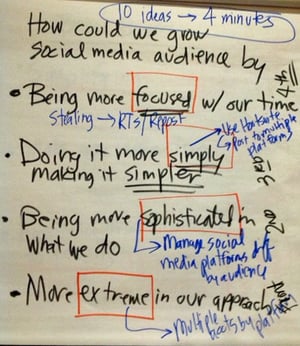 10 ideas → 4 minutes
How could we grow
social media audience by
• Being more focused w/ our time
Stealing → RTs/Repost
→ Use Hootsuite
Post to multiple
platforms
• Doing it more simply
making it simpler
• Being more sophisticated in
what we do
→ Manage social
media platforms diff
by audience
• More extreme in our approach
→ Multiple posts by platform